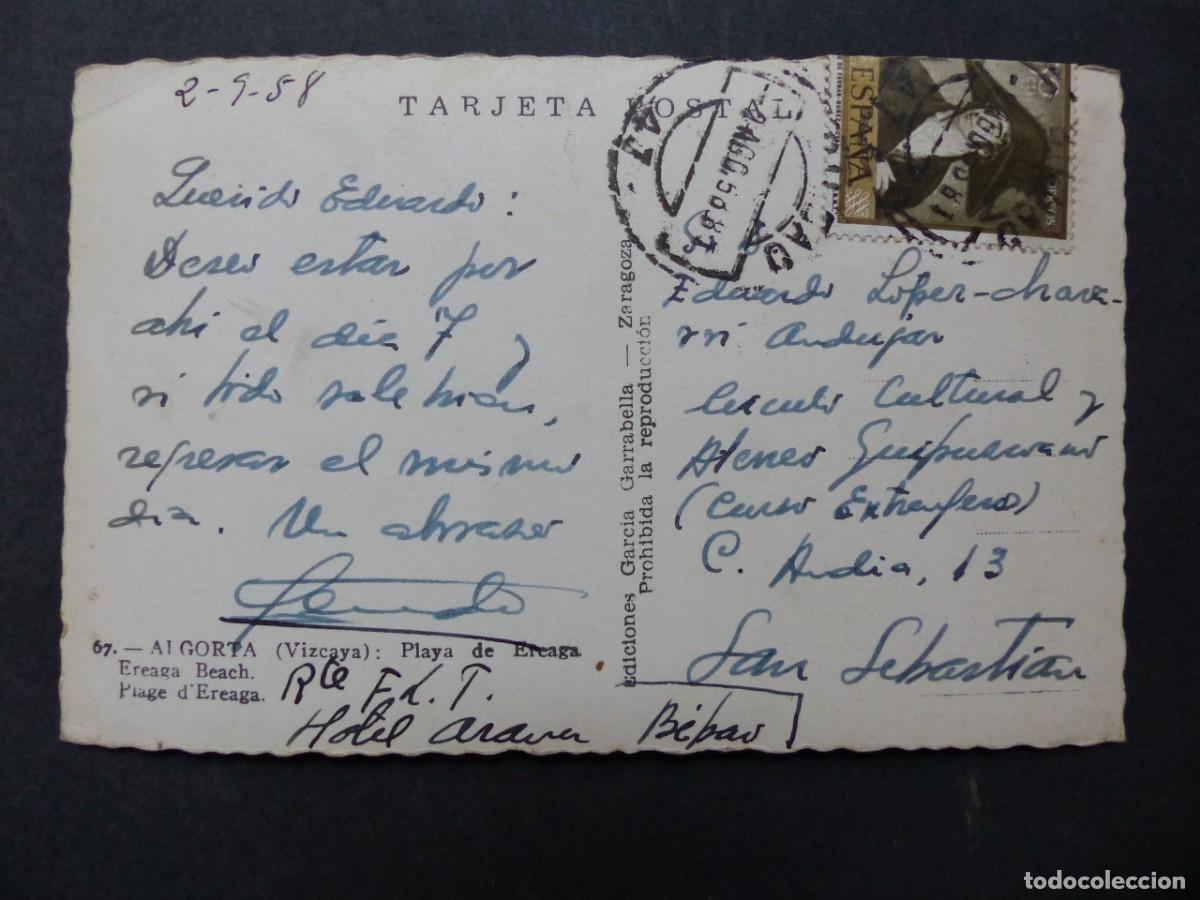 2-9-58
TARJETA POSTAL
Querido Eduardo:
Deseo estar por
ahi el dia 7 y
si todo sale bien,
regresar el mismo
dia. Un abrazo
67. — ALGORTA (Vizcaya): Playa de Ereaga
Ereaga Beach.
Plage d'Ereaga.
Rte F.L.T.
Hotel Arana Bilbao
Ediciones García Garrabella — Zaragoza
Prohibida la reproducción
ESPAÑA
CORREOS
2 AGO 58
Eduardo López-Chava-
rri Andujar
Circulo Cultural y
Ateneo Guipuzcoano
(Curso Extranjeros)
C. Andia, 13
San Sebastian
todocoleccion